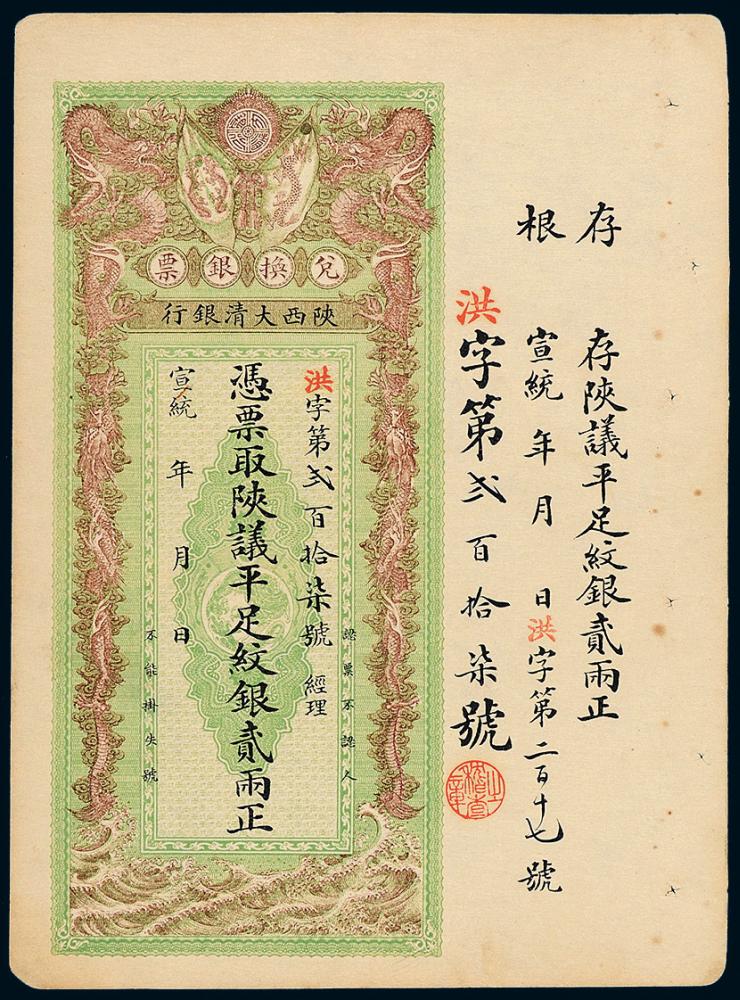 存根
存陝議平足紋銀貳兩正
宣統 年 月 日 洪字第二百十七號
洪字第弍百拾柒號
兌換銀票
陝西大清銀行
洪字第弍百拾柒號 經理
憑票取陝議平足紋銀貳兩正
宣統 年 月 日
認票不認人
不能掛失號